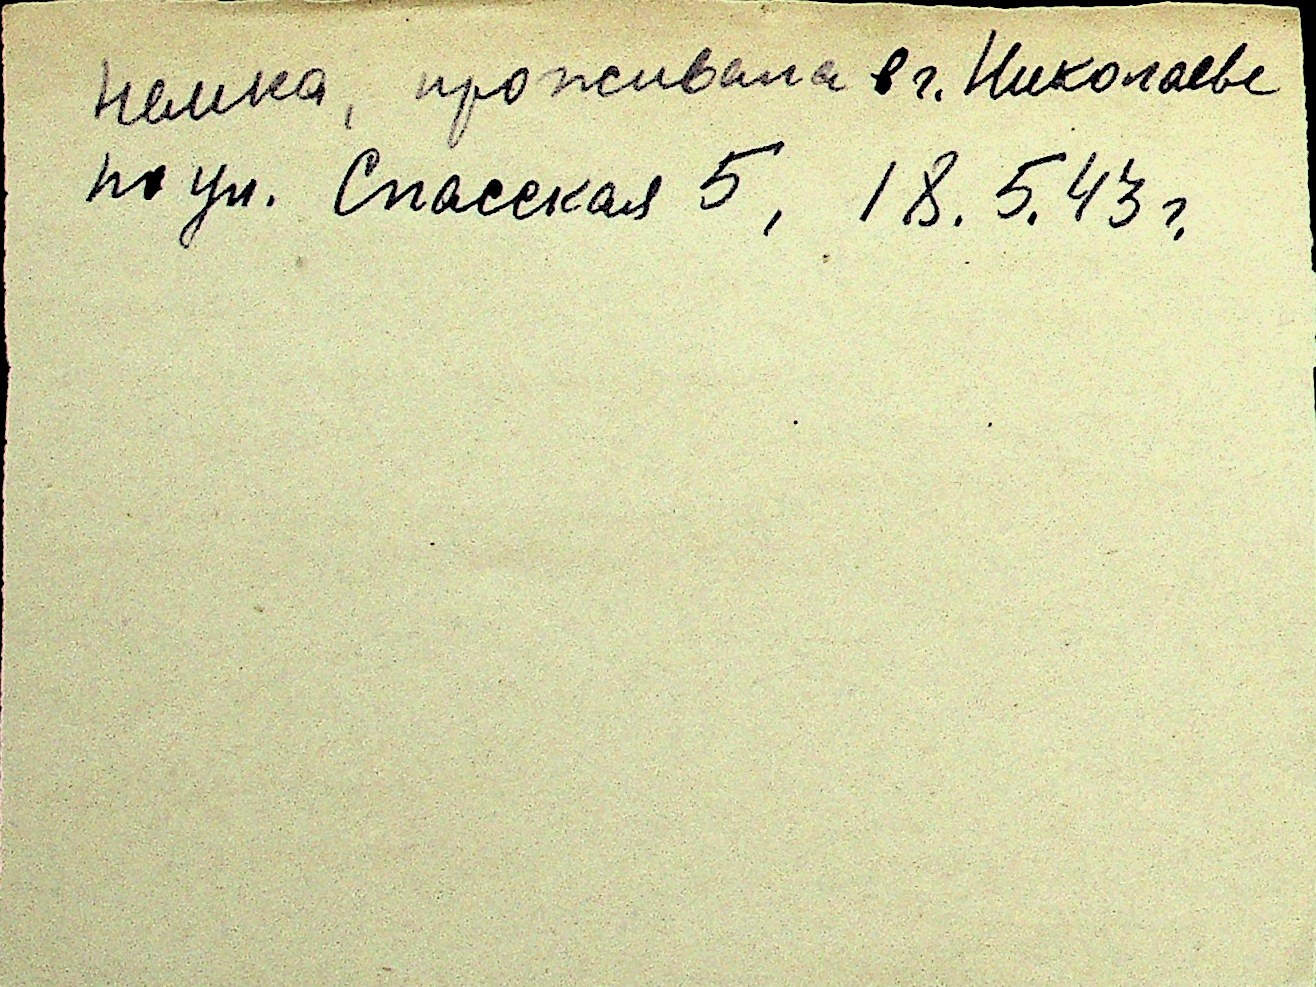 немка, проживала в г. Николаеве
по ул. Спасская 5, 18.5.43 г.